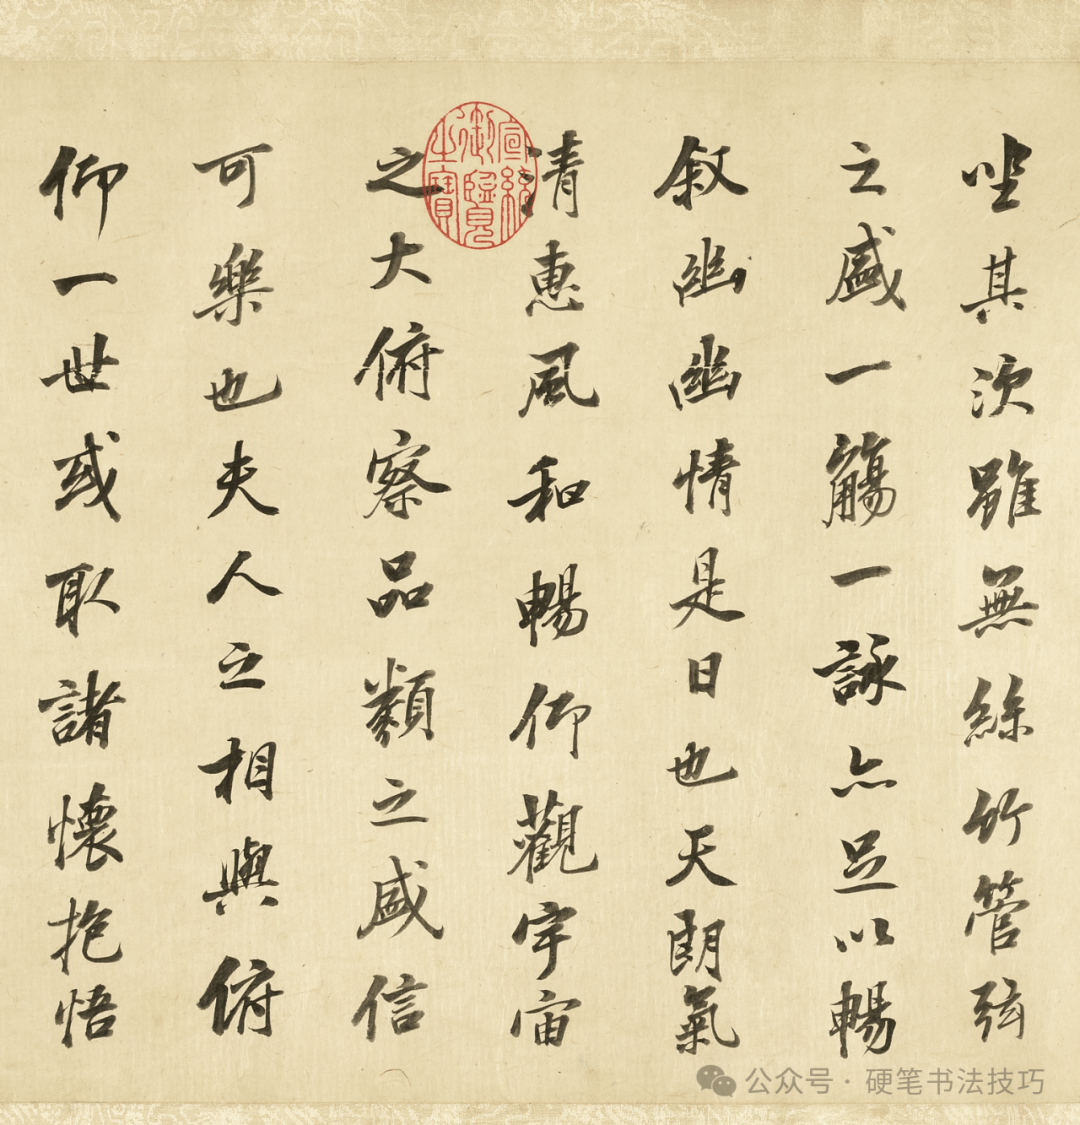 坐其次雖無絲竹管弦
之盛一觴一詠亦足以暢
叙幽幽情是日也天朗氣
清惠風和暢仰觀宇宙
之大俯察品類之盛信
可樂也夫人之相與俯
仰一世或取諸懷抱悟
宣統
御覽
之寶
公众号 · 硬笔书法技巧